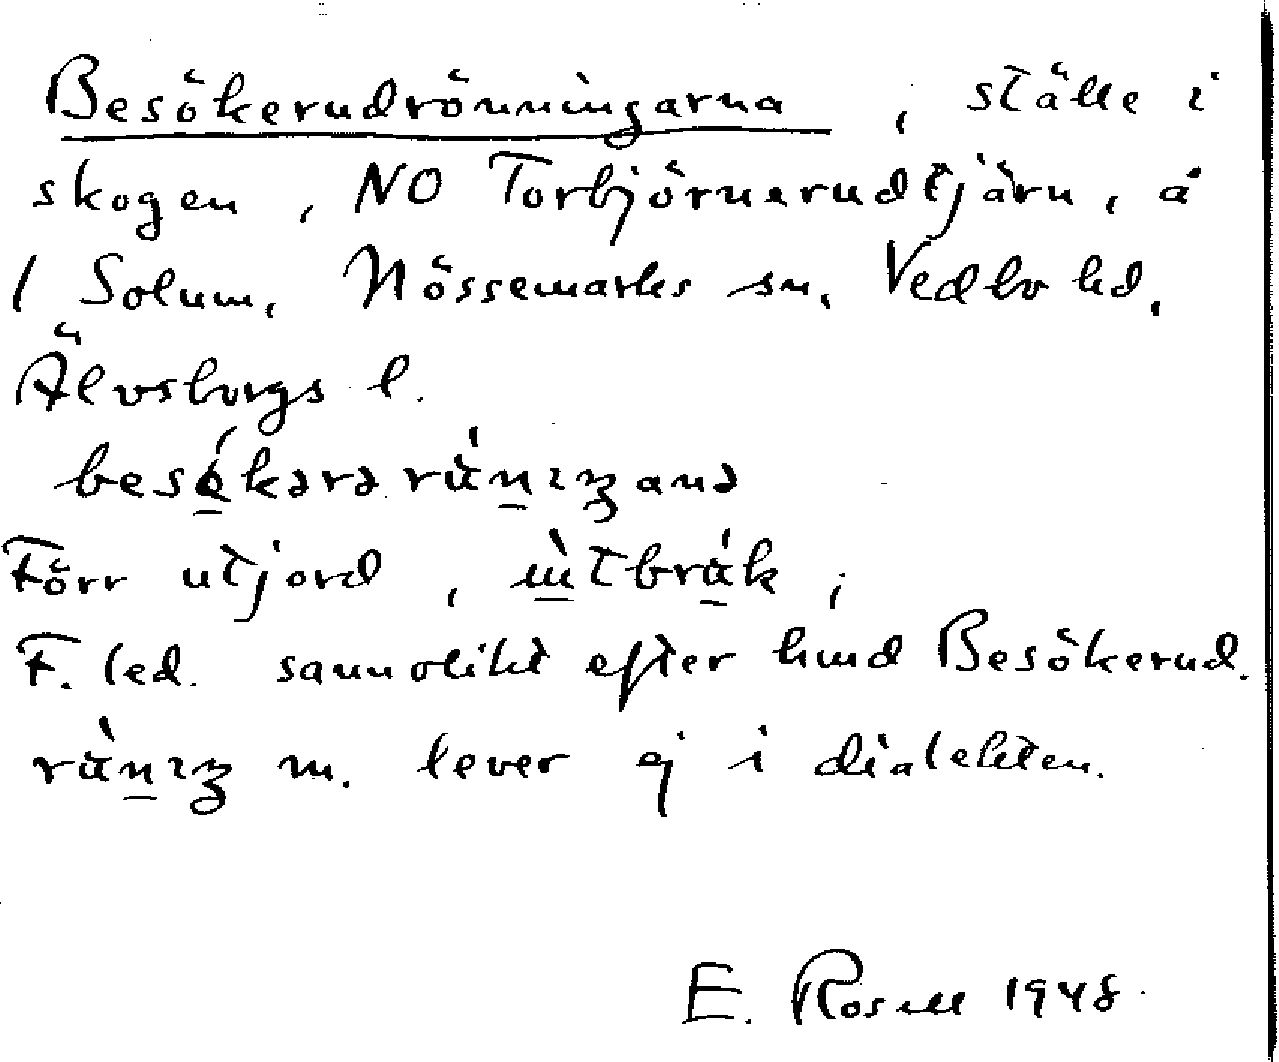 Besökerudrönningarna, ställe i
skogen, NO Torbjörnerudtjärn, å
1 Solum, Nössemarks sn, Vedbo hd,
Älvsborgs l.
Förr utjord,
F. led. sannolikt efter hmd Besökerud.
m. lever ej i dialekten.
E. Rosell 1948